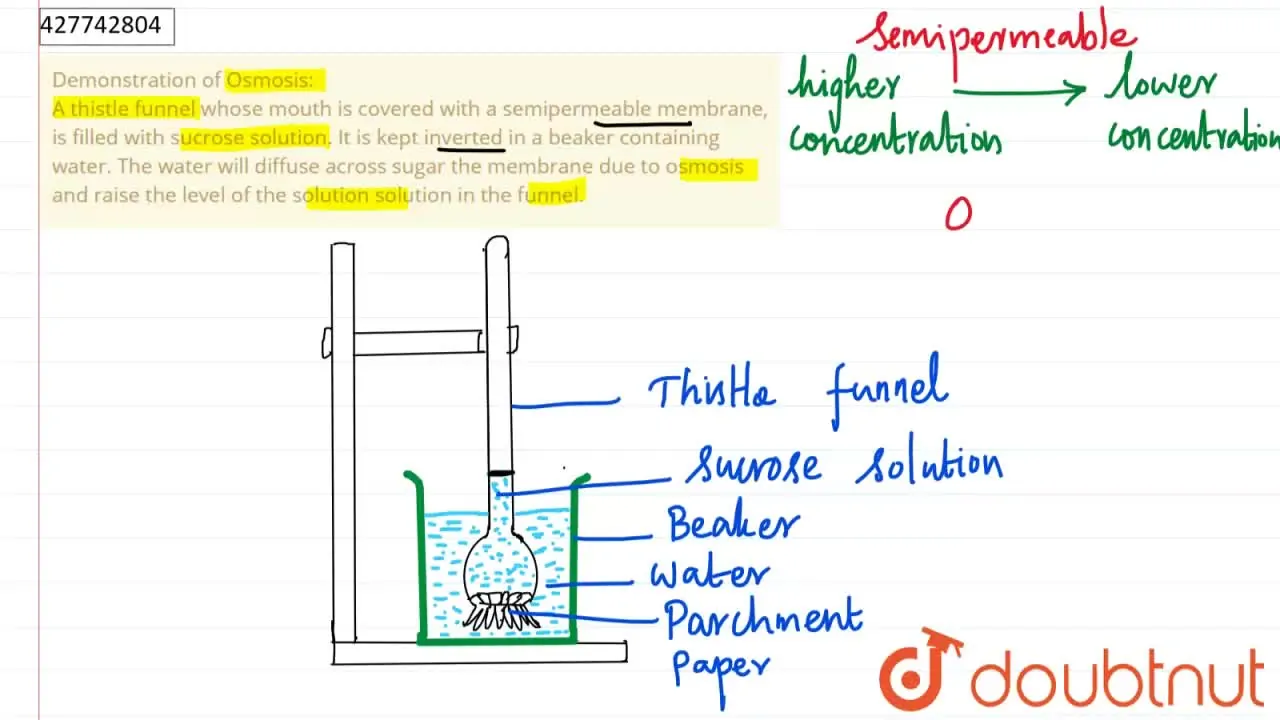 427742804
Demonstration of Osmosis:
A thistle funnel whose mouth is covered with a semipermeable membrane,
is filled with sucrose solution. It is kept inverted in a beaker containing
water. The water will diffuse across sugar the membrane due to osmosis
and raise the level of the solution solution in the funnel.
semipermeable
higher → lower
concentration concentration
O
Thistle funnel
sucrose solution
Beaker
water
Parchment
paper
doubtnut